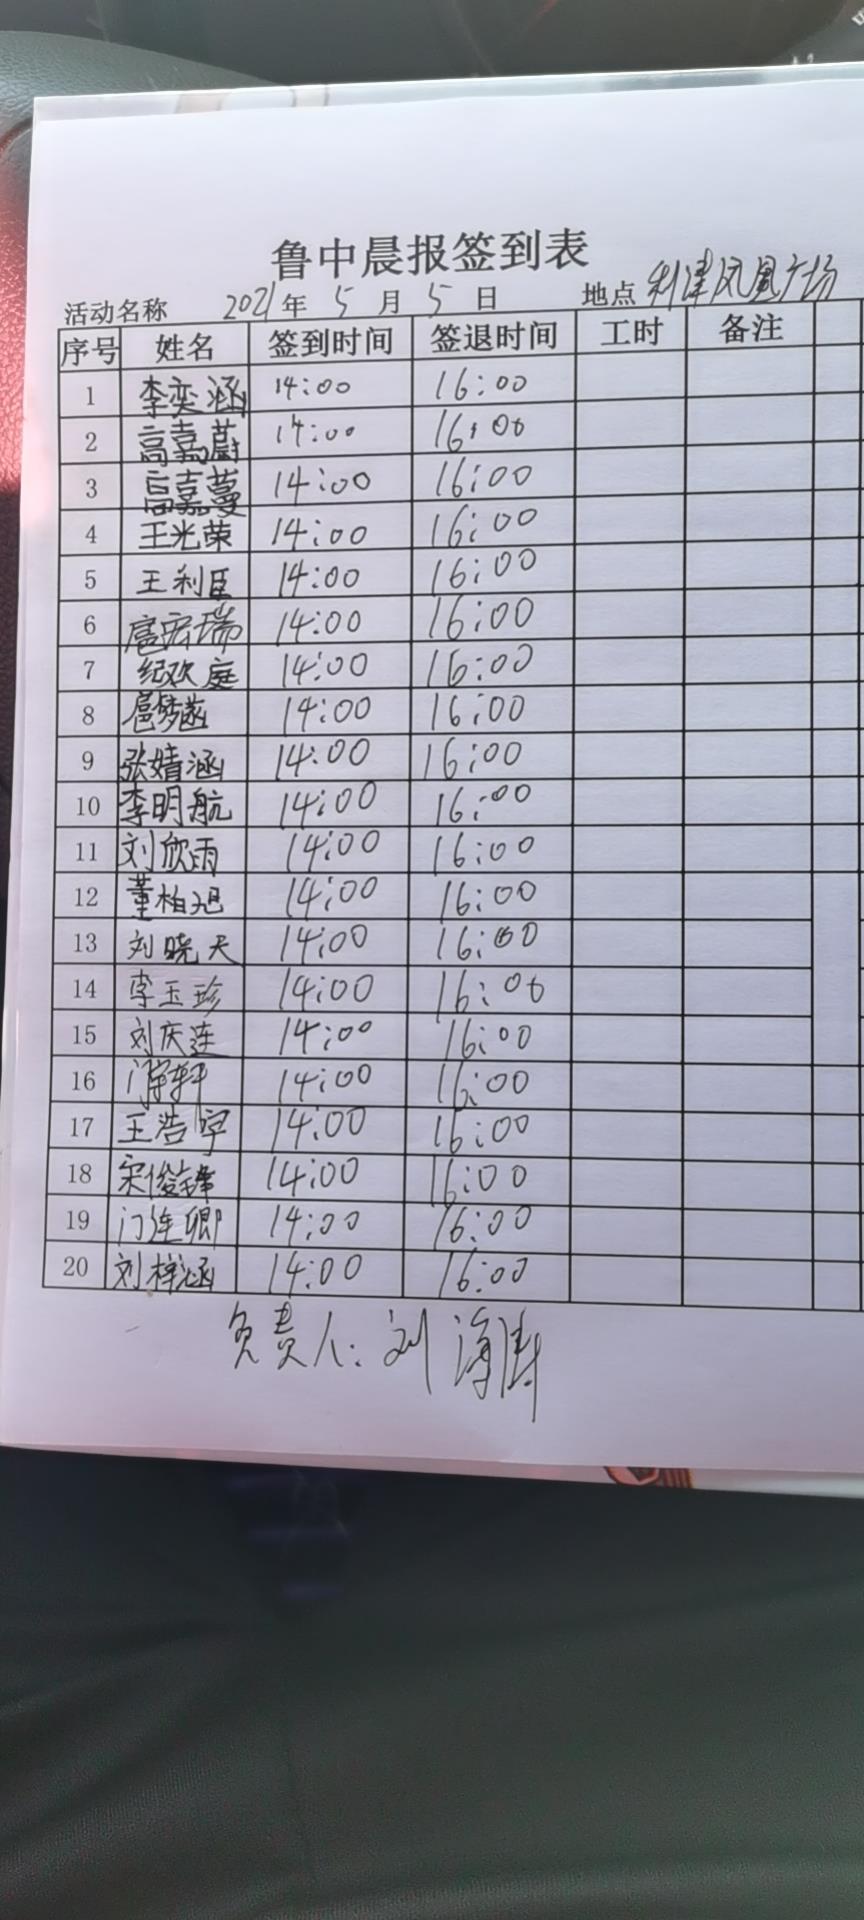 鲁中晨报签到表
活动名称 2021年 5 月 5 日 地点 利津凤凰广场
序号 姓名 签到时间 签退时间 工时 备注
1 李奕涵 14:00 16:00
2 高嘉蔚 14:00 16:00
3 高嘉蔓 14:00 16:00
4 王光荣 14:00 16:00
5 王利臣 14:00 16:00
6 扈宏瑞 14:00 16:00
7 纪欢庭 14:00 16:00
8 扈梦菡 14:00 16:00
9 张婧涵 14:00 16:00
10 李明航 14:00 16:00
11 刘欣雨 14:00 16:00
12 董柏旭 14:00 16:00
13 刘晓天 14:00 16:00
14 李玉珍 14:00 16:00
15 刘庆连 14:00 16:00
16 14:00 16:00
17 王浩宇 14:00 16:00
18 宋俊锋 14:00 16:00
19 门连卿 14:00 16:00
20 刘梓涵 14:00 16:00
负责人: 刘海涛